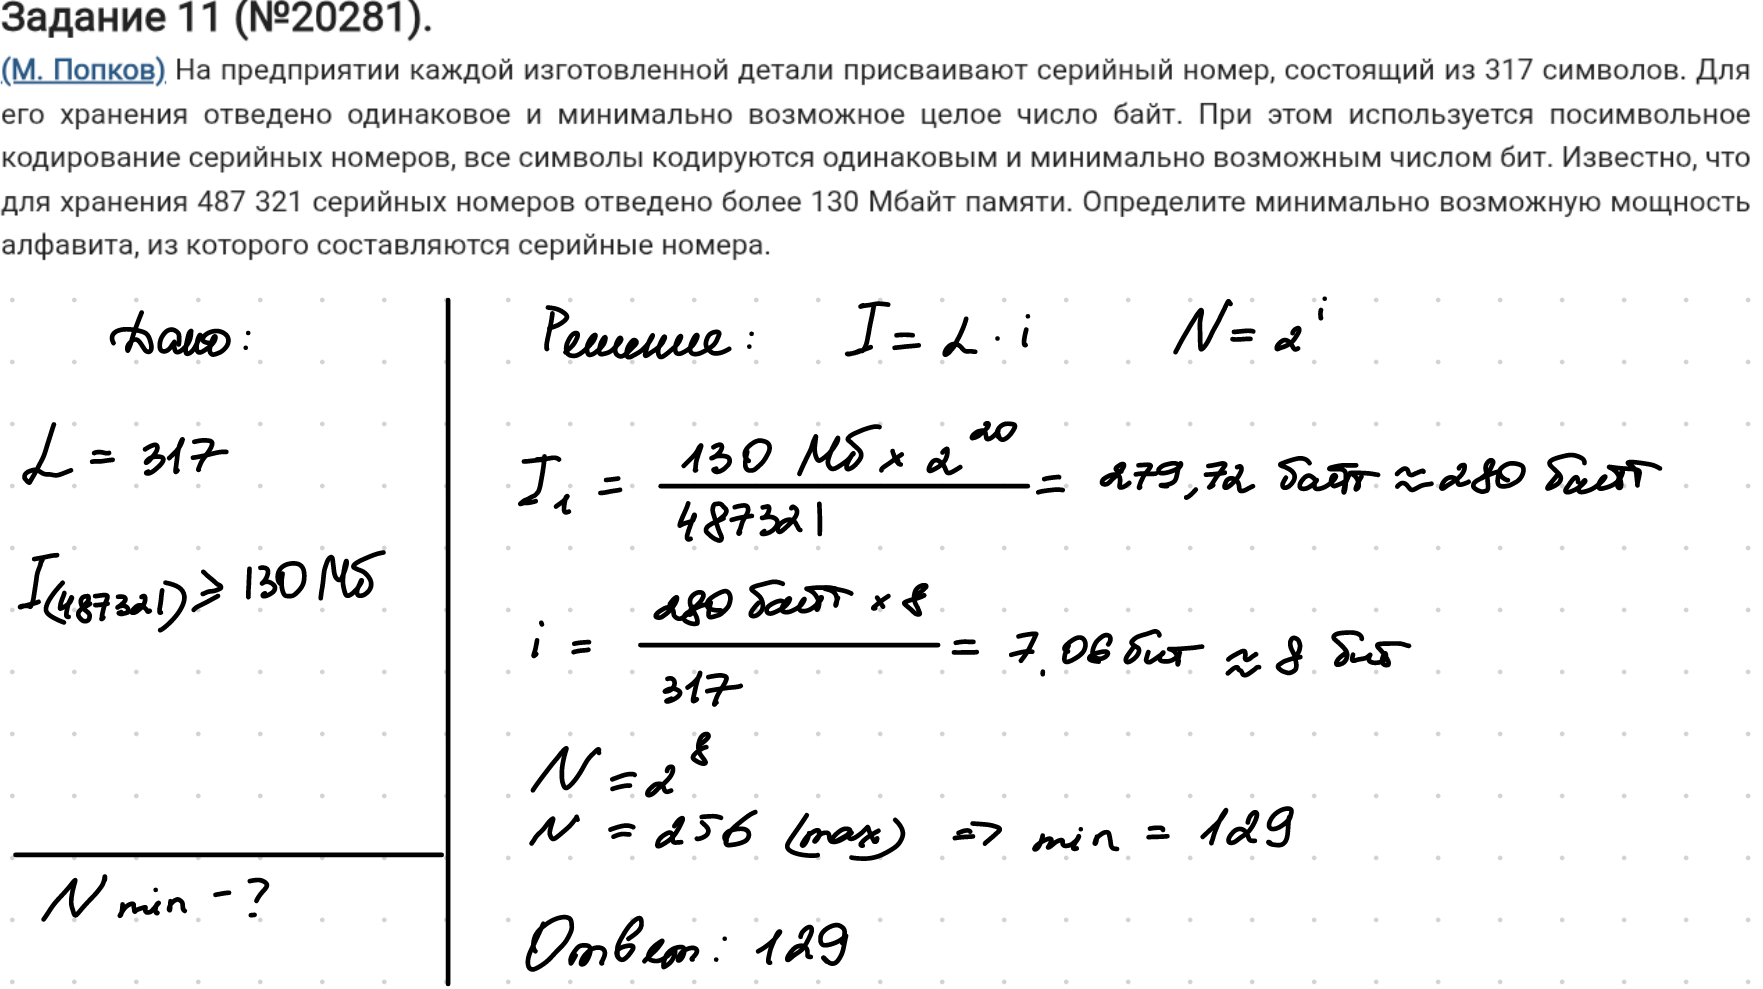 Задание 11 (№20281).
(М. Попков) На предприятии каждой изготовленной детали присваивают серийный номер, состоящий из 317 символов. Для
его хранения отведено одинаковое и минимально возможное целое число байт. При этом используется посимвольное
кодирование серийных номеров, все символы кодируются одинаковым и минимально возможным числом бит. Известно, что
для хранения 487 321 серийных номеров отведено более 130 Мбайт памяти. Определите минимально возможную мощность
алфавита, из которого составляются серийные номера.
Дано:
L = 317
I(487321) ⩾ 130 Мб
N min - ?
Решение: I = L · i N = 2^i
I₁ = (130 Мб × 2^20) / 487321 = 279,72 байт ≈ 280 байт
i = (280 байт × 8) / 317 = 7.06 бит ≈ 8 бит
N = 2^8
N = 256 (max) => min = 129
Ответ: 129